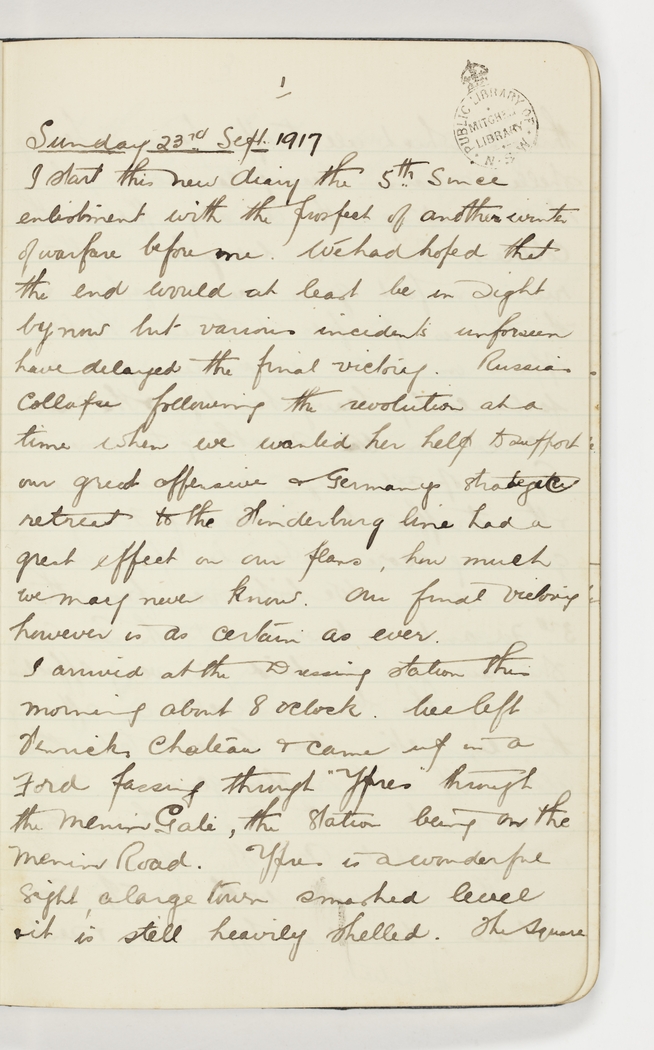 1
PUBLIC LIBRARY OF N.S.W.
MITCHELL
LIBRARY
Sunday 23rd Sept. 1917
I start this new diary the 5th Since
enlistment with the prospect of another winter
of warfare before me. We had hoped that
the end would at least be in sight
by now but various incidents unforseen
have delayed the final victory. Russias
Collapse following the revolution at a
time when we wanted her help to support
our great offensive & Germanys strategetic
retreat to the Hinderburg line had a
great effect on our plans, how much
we may never know. Our final victory
however is as certain as ever.
I arrived at the Dressing station this
morning about 8 oclock. We left
Chateau & came up in a
Ford passing through "Ypres" through
the Menin Gate, the station being on the
Menin Road. Ypres is a wonderful
sight, a large town smashed level
& it is still heavily shelled. The Square